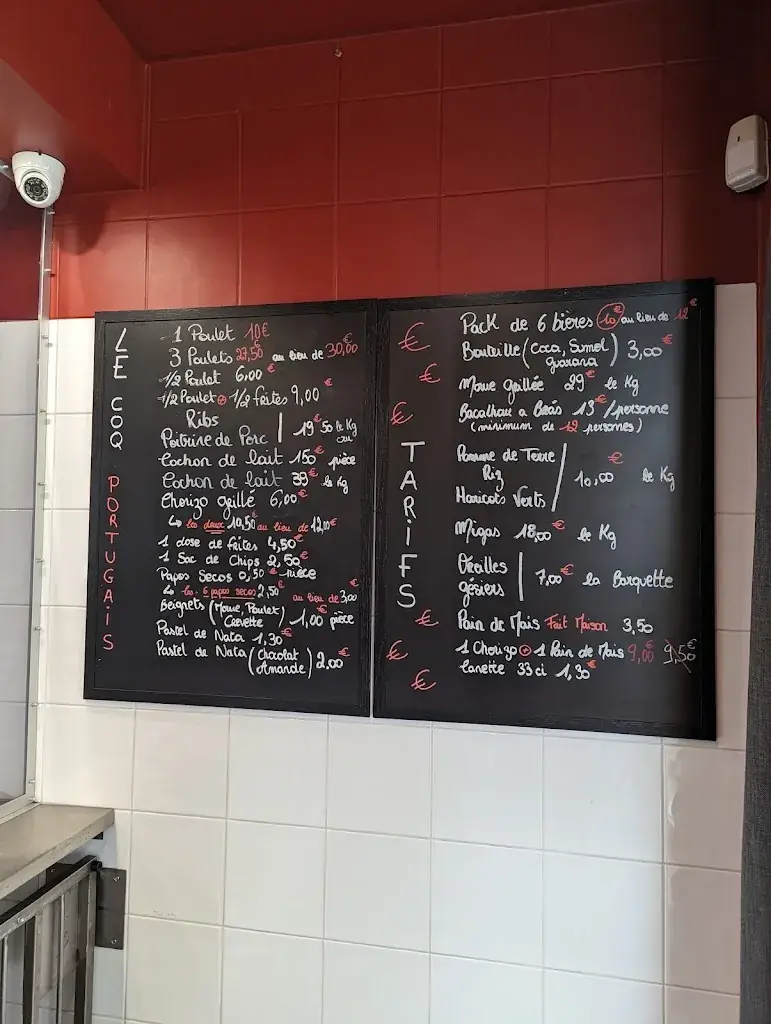 LE COQ PORTUGAIS
1 Poulet 10€
3 Poulets 27,50 au lieu de 30,00€
1/2 Poulet 6,00€
1/2 Poulet + 1/2 frites 9,00€
Ribs
Poitrine de Porc | 19€50 le Kg
Cochon de lait 150€ pièce
ou
Cochon de lait 39€ le Kg
Chorizo grillé 6,00€
↳ les deux 10,50€ au lieu de 12,00€
1 dose de frites 4,50€
1 Sac de Chips 2,50€
Papos Secos 0,50€ pièce
↳ les 6 papos secos 2,50€ au lieu de 3,00€
Beignets (Morue, Poulet, Crevette) 1,00€ pièce
Pastel de Nata 1,30€
Pastel de Nata (Chocolat Amande) 2,00€
TARIFS
Pack de 6 bières 10€ au lieu de 12€
Bouteille (Coca, Sumol guarana) 3,00€
Morue grillée 29€ le Kg
Bacalhau a Brás 13€/personne
(minimum de 12 personnes)
Pomme de Terre
Riz
Haricots Verts | 10,00€ le Kg
Migas 18,00€ le Kg
Oreilles
gésiers | 7,00€ la Barquette
Pain de Mais Fait Maison 3,50
1 Chorizo + 1 Pain de Mais 9,00€ 9,50€
Canette 33 cl 1,30€